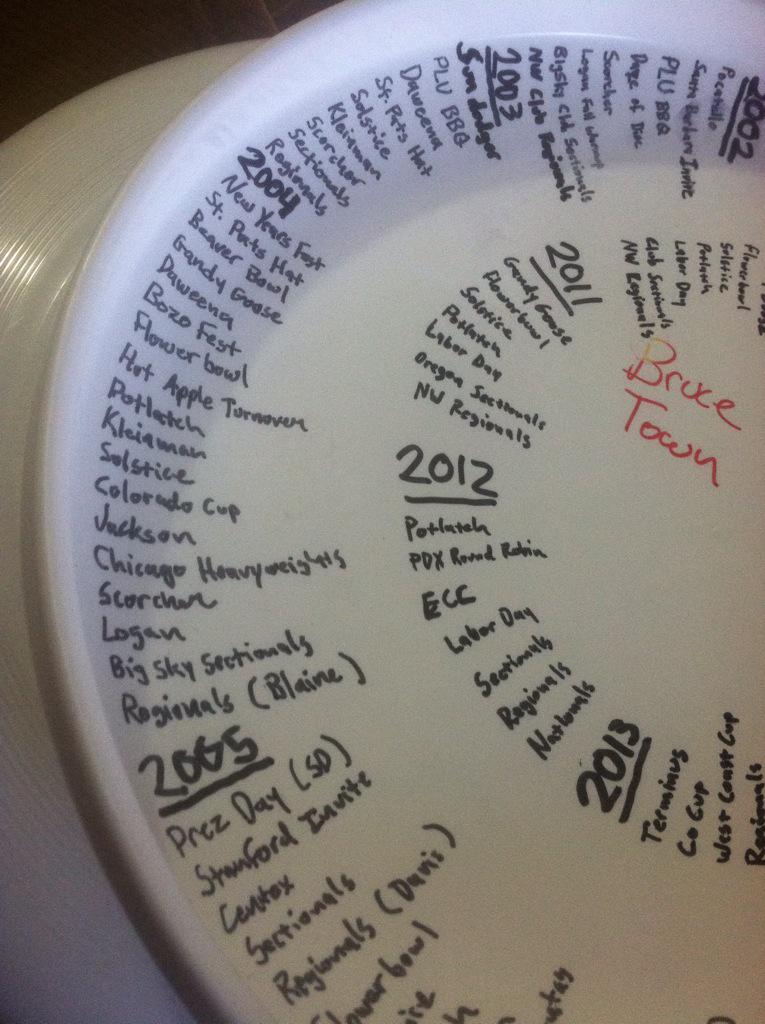 2002
Pocatello
Santa Barbara Invite
PLU BBQ
Daze of Disc
Scorcher
Logan Fall
BigSky Club Sectionals
NW Club Regionals
2003
Sun dodger
PLU BBQ
Daweena
St. Pats Hat
Solstice
Kleinman
Scorcher
Sectionals
Regionals
2004
New Years Fest
St. Pats Hat
Beaver Bowl
Gandy Goose
Daweena
Bozo Fest
Flowerbowl
Hot Apple Turnover
Potlatch
Kleinman
Solstice
Colorado Cup
Jackson
Chicago Heavyweights
Scorcher
Logan
Big Sky Sectionals
Regionals (Blaine)
2005
Prez Day (SD)
Stanford Invite
Centex
Sectionals
Regionals (Davis)
Flowerbowl
Flowerbowl
Solstice
Potlatch
Labor Day
Club Sectionals
NW Regionals
2011
Gandy Goose
Flowerbowl
Solstice
Potlatch
Labor Day
Oregon Sectionals
NW Regionals
2012
Potlatch
PDX Round Robin
ECC
Labor Day
Sectionals
Regionals
Nationals
2013
Terminus
Co Cup
West Coast Cup
Regionals
Bruce
Town